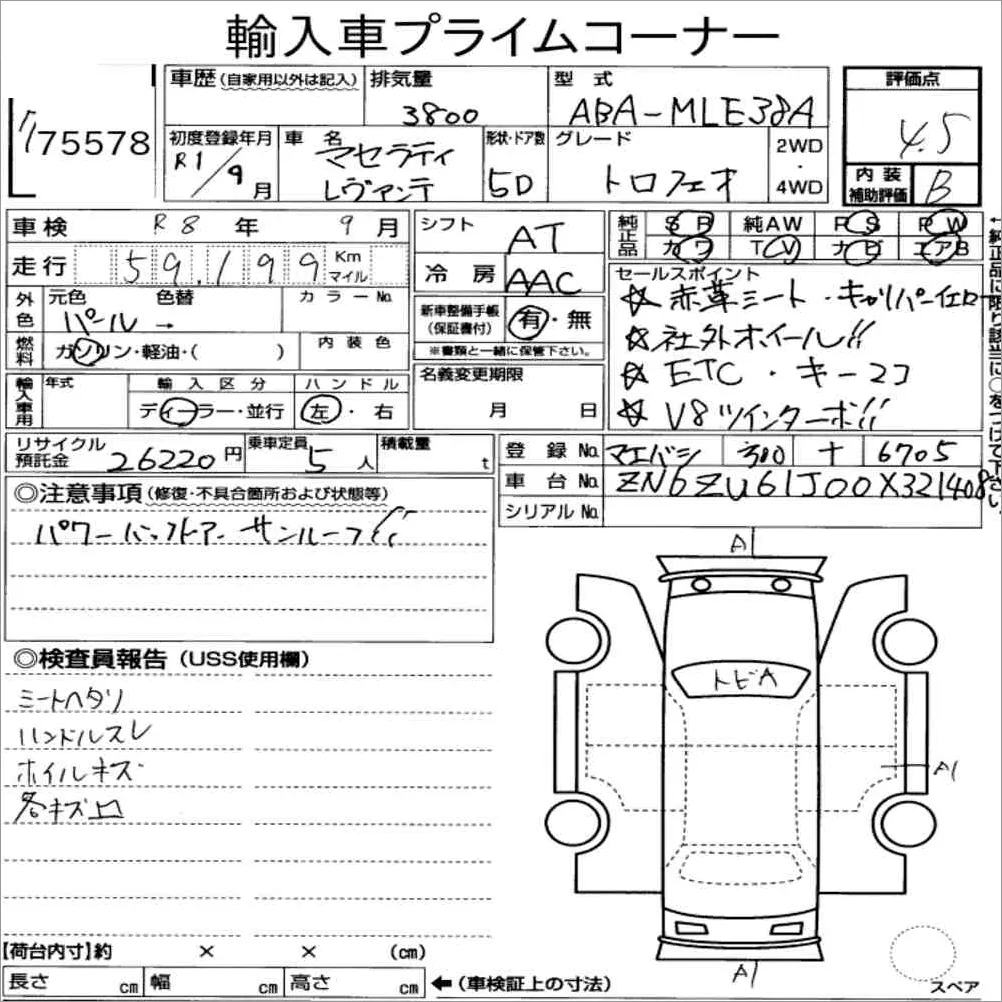 輸入車プライムコーナー
75578
車歴(自家用以外は記入)
排気量
3800
型式
ABA-MLE38A
評価点
4.5
初度登録年月
R1/9月
車名
マセラティ
レヴァンテ
形状・ドア数
5D
グレード
トロフェオ
2WD
・
4WD
内装
補助評価
B
車検 R8年 9月
走行 59,199 Km
マイル
シフト
AT
冷房
AAC
純正品
SR 純AW PS PW
カワ TV ナビ エアB
←純正品に限り該当に○をつけて下さい。
外色
元色 色替 カラーNo.
パール →
燃料
ガソリン・軽油・( )
内装色
新車整備手帳
(保証書付)
有・無
※書類と一緒に保管下さい。
セールスポイント
☆赤革シート・キャリパーイエロー
☆社外ホイール!!
☆ETC・キー2コ
☆V8ツインターボ!!
輸入車用
年式
輸入区分
ディーラー・並行
ハンドル
左・右
名義変更期限
月 日
リサイクル
預託金
26220円
乗車定員
5人
積載量
t
登録No. マエバシ 300 ナ 6705
車台No. ZN6ZU61J00X321408
シリアルNo.
◎注意事項(修復・不具合箇所および状態等)
パワーバックドアー サンルーフ!!
◎検査員報告(USS使用欄)
シートヘタリ
ハンドルスレ
ホイルキズ
各キズ凹
A1
トビA
A1
A1
スペア
【荷台内寸】約 × × (cm)
長さ cm 幅 cm 高さ cm ←(車検証上の寸法)